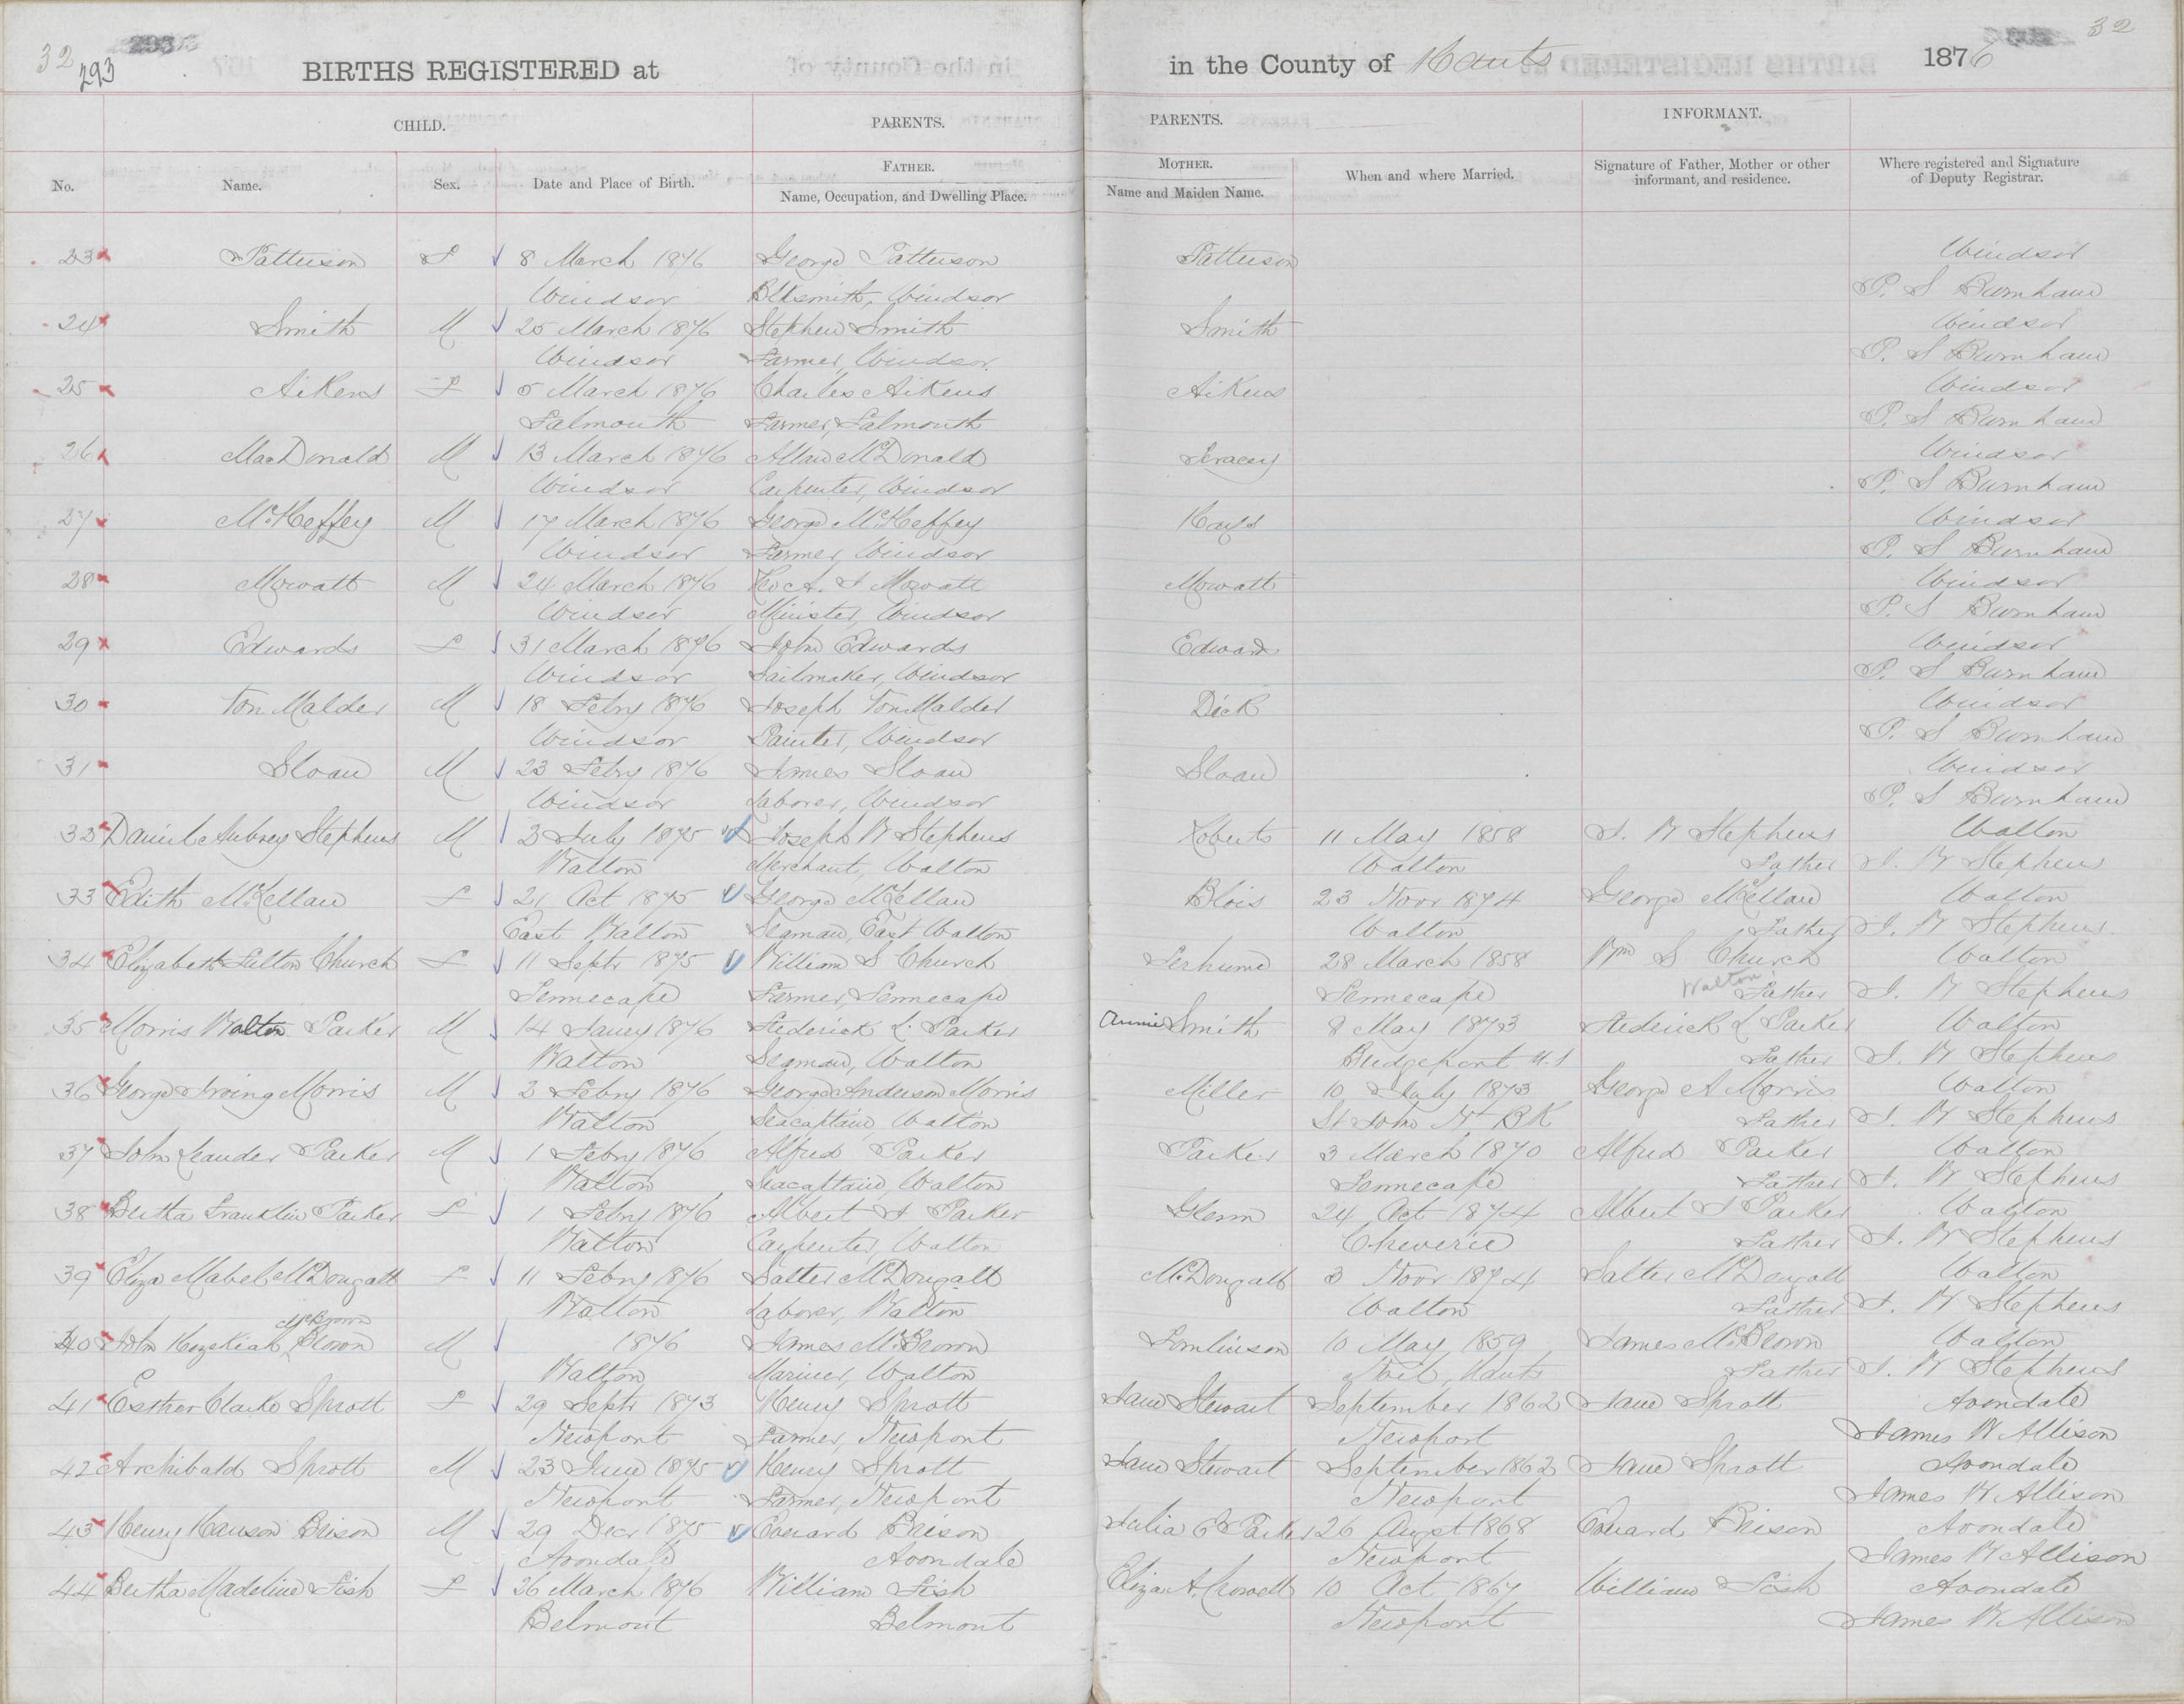 32
293
32
BIRTHS REGISTERED at in the County of Hants 1876
CHILD. PARENTS. PARENTS. INFORMANT.
No. Name. Sex. Date and Place of Birth. FATHER. Name, Occupation, and Dwelling Place. MOTHER. Name and Maiden Name. When and where Married. Signature of Father, Mother or other informant, and residence. Where registered and Signature of Deputy Registrar.
23 Patterson F 8 March 1876 George Patterson Patterson Windsor
Windsor Blksmith, Windsor P. S Burnham
24 Smith M 25 March 1876 Stephen Smith Smith Windsor
Windsor Farmer, Windsor P. S Burnham
25 Aikens F 5 March 1876 Charles Aikens Aikens Windsor
Falmouth Farmer, Falmouth P. S Burnham
26 MacDonald M 13 March 1876 Allan McDonald Tracey Windsor
Windsor Carpenter, Windsor P. S Burnham
27 McHeffey M 17 March 1876 George McHeffey Hays Windsor
Windsor Farmer, Windsor P. S Burnham
28 Mowatt M 24 March 1876 Rev A. J Mowatt Mowatt Windsor
Windsor Minister, Windsor P. S Burnham
29 Edwards F 31 March 1876 John Edwards Edwards Windsor
Windsor Sailmaker, Windsor P. S Burnham
30 Von Malder M 18 Febry 1876 Joseph Von Malder Dick Windsor
Windsor Painter, Windsor P. S Burnham
31 Sloan M 23 Febry 1876 James Sloan Sloan Windsor
Windsor Laborer, Windsor P. S Burnham
32 Daniel Aubrey Stephens M 3 July 1875 Joseph W Stephens Roberts 11 May 1858 J. W Stephens Walton
Walton Merchant, Walton Walton Father J. W Stephens
33 Edith McKellan F 21 Oct 1875 George McKellan Blois 23 Novr 1874 George McKellan Walton
East Walton Seaman, East Walton Walton Father J. W Stephens
34 Elizabeth Fulton Church F 11 Septr 1875 William S Church 28 March 1858 Wm S Church Walton
Tennecape Farmer, Tennecape Tennecape Walton Father J. W Stephens
35 Morris Walton Parker M 14 Jany 1876 Frederick L. Parker Annie Smith 8 May 1873 Frederick L Parker Walton
Walton Seaman, Walton Bridgeport U.S Father J. W Stephens
36 George Irving Morris M 2 Febry 1876 George Anderson Morris Miller 10 July 1873 George A Morris Walton
Walton Seacaptain, Walton St John N BK Father J. W Stephens
37 John Leander Parker M 1 Febry 1876 Alfred Parker Parker 3 March 1870 Alfred Parker Walton
Walton Seacaptain, Walton Tennecape Father J. W Stephens
38 Bertha Franklin Parker F 1 Febry 1876 Albert J Parker Glenn 24 Oct 1874 Albert J Parker Walton
Walton Carpenter, Walton Cheverie Father J. W Stephens
39 Eliza Mabel McDougall F 11 Febry 1876 Salter McDougall McDougall 3 Novr 1874 Salter McDougall Walton
Walton Laborer, Walton Walton Father J. W Stephens
McBrown
40 John Hezekiah Brown M 1876 James McBrown Tomlinson 10 May 1859 James McBrown Walton
Walton Mariner, Walton Noel, Hants Father J. W Stephens
41 Esther Clarke Sprott F 29 Septr 1873 Henry Sprott Jane Stewart September 1862 Jane Sprott Avondale
Newport Farmer, Newport Newport James W Allison
42 Archibald Sprott M 23 June 1875 Henry Sprott Jane Stewart September 1862 Jane Sprott Avondale
Newport Farmer, Newport Newport James W Allison
43 Henry Hanson Brison M 29 Decr 1875 Everard Brison Julia E Parker 26 Augst 1868 Everard Brison Avondale
Avondale Avondale Newport James W Allison
44 Bertha Madeline Fish F 26 March 1876 William Fish Eliza A. Crowell 10 Oct 1867 William Fish Avondale
Belmont Belmont Newport James W Allison